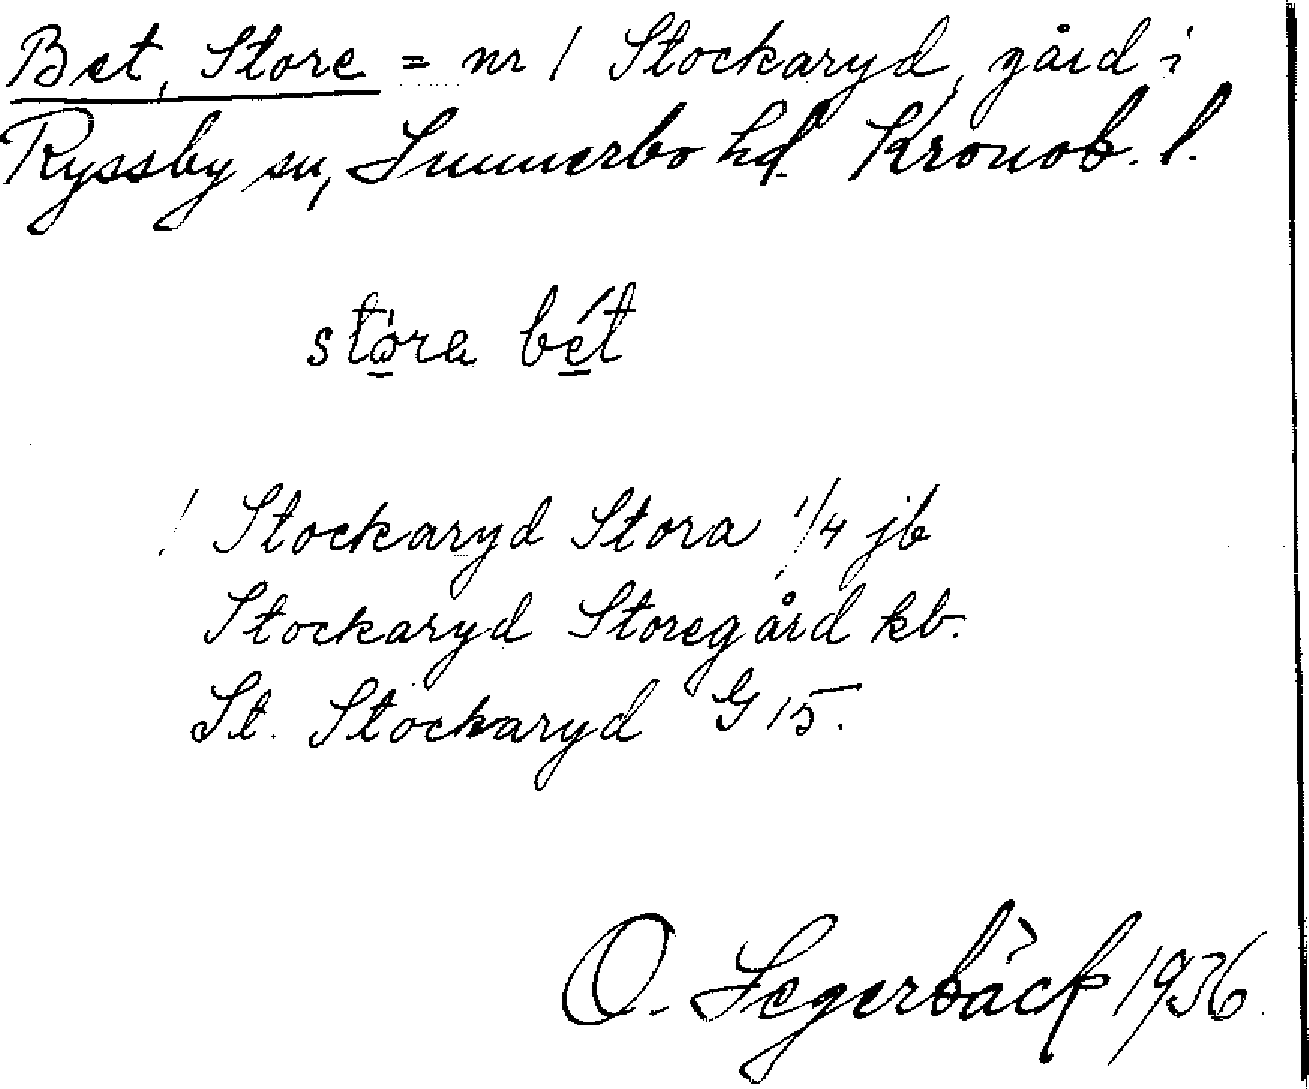 Bet, Store = nr 1 Stockaryd, gård i
Ryssby sn, Sunnerbo hd. Kronob. l.
störe bét
! Stockaryd Stora 1/4 jb
Stockaryd Storegård kb.
St. Stockaryd G 15.
O. Segerbäck 1936.